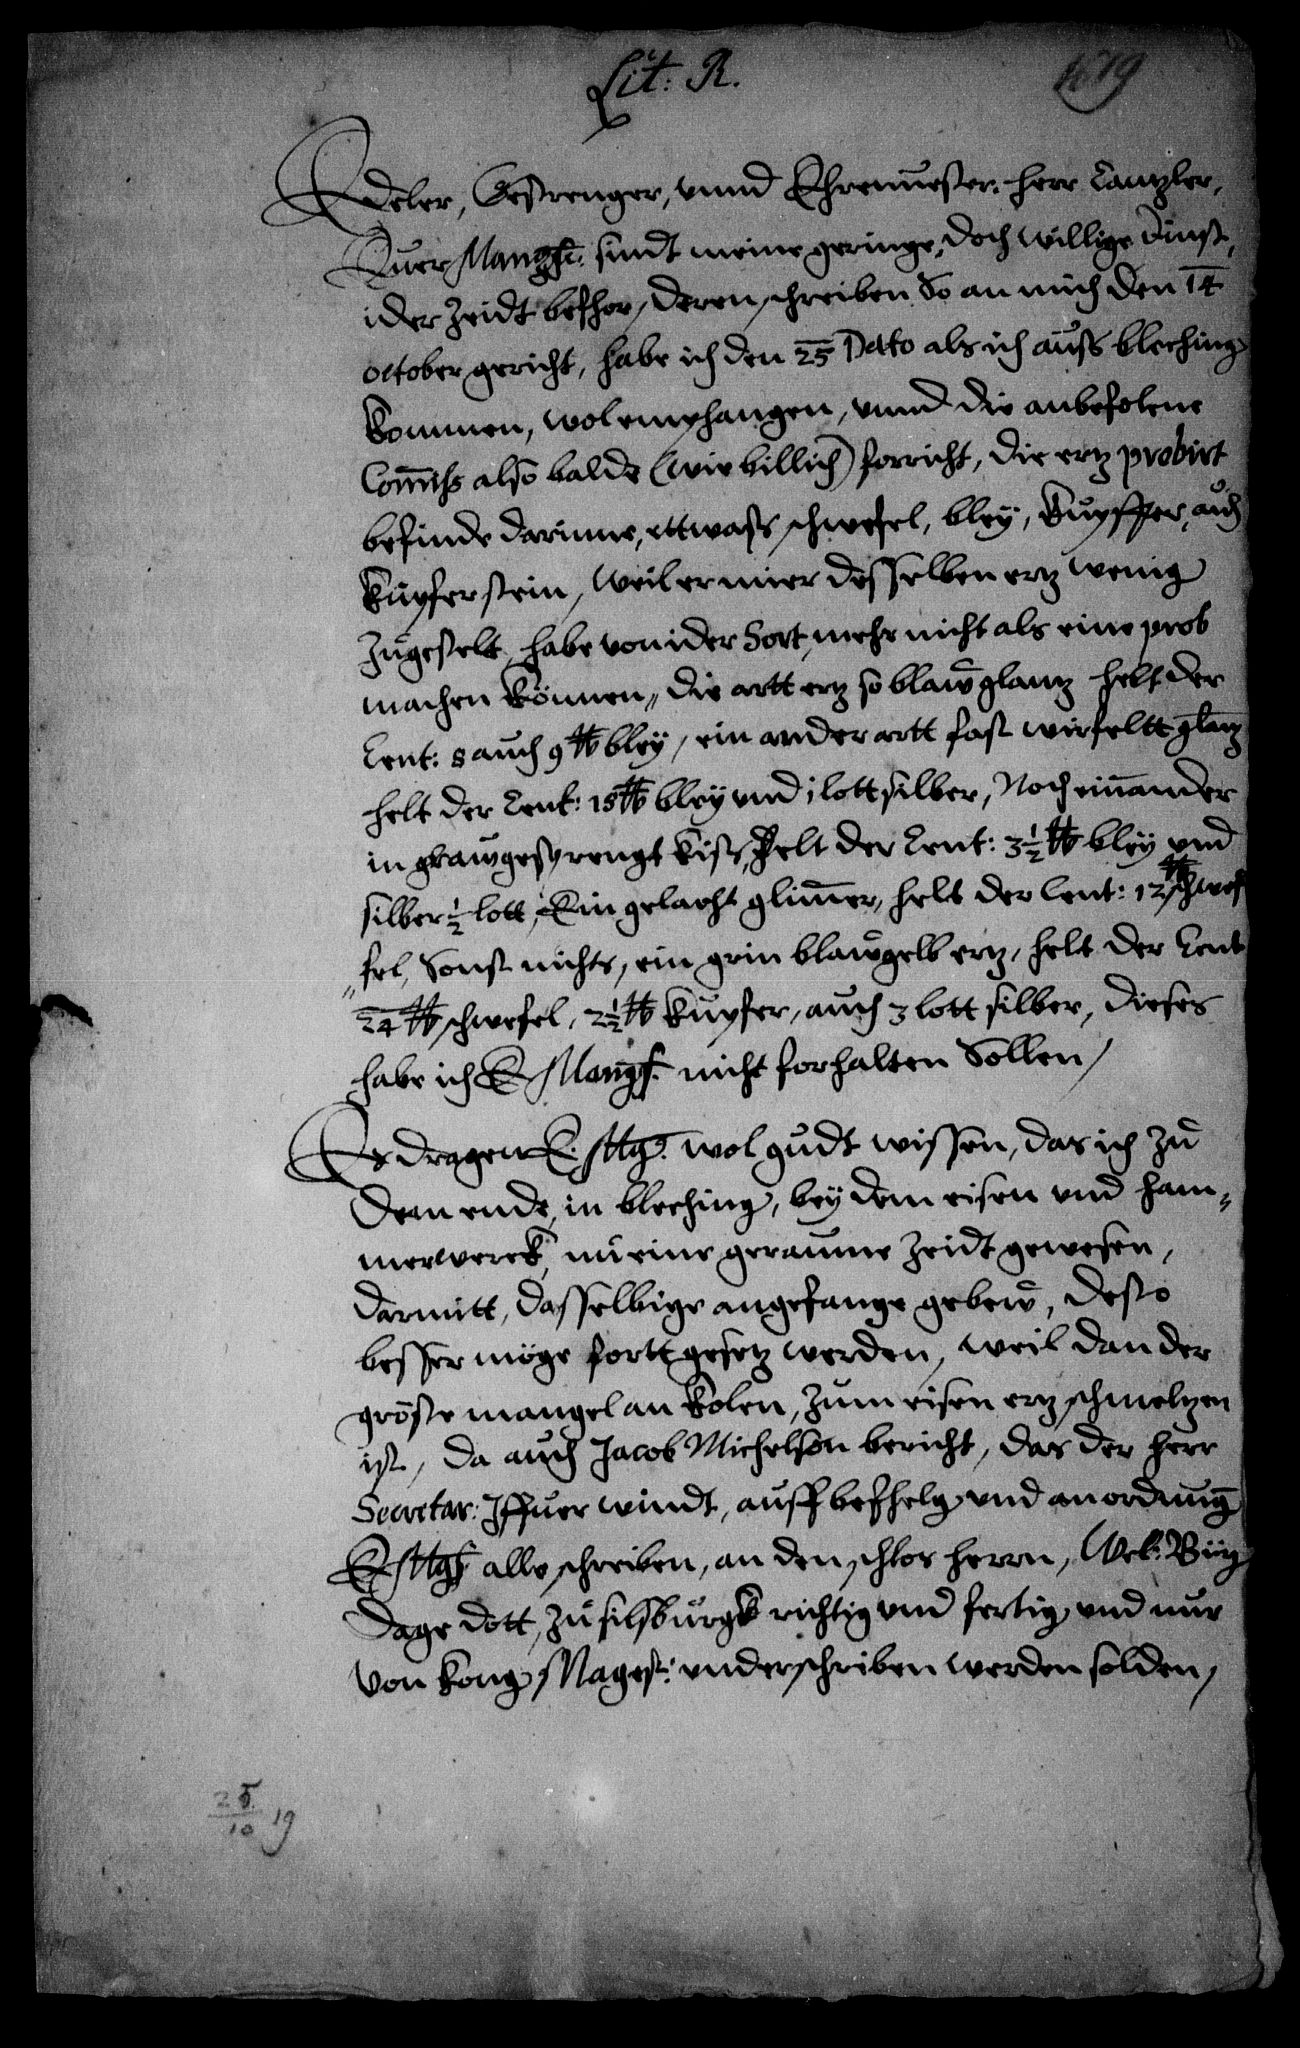 Lit: R.
1619
Edeler, Gestrenger, vnnd Ehrenuester herr Cantzler,
Euer Mangf: sindt meine geringe, doch willige dinst,
ider Zeidt befhor, deren schreiben So an mich den 14
october gericht, habe ich den 25 Dato als ich auss bleching
kommen, wol emphangen, vnnd die anbefolene
Comiss also balde (wie billich) forricht, die ertz probirt
befinde darinne, ettwass schwefel, bley, kupffer, auch
kupferstein, weil er mier desselben ertz wenig
zugestelt, habe von ider Sort, mehr nicht als eine prob
machen können, die artt ertz so blaw glantz helt der
Cent: 8 auch 9 ℔ bley, ein ander artt fast wirfeltt glantz
helt der Cent: 18 ℔ bley vnd 1 lott silber, Noch ein ander
in graw gesprengt kiss, helt der Cent: 3½ ℔ bley vnd
silber ½ lott, Ein gelacht glimer, helt der Cent: 12 ℔ schwef
fel, Sonst nichts, ein grin blaw gelb ertz, helt der Cent
24 ℔ schwefel, 2½ ℔ kupfer, auch 3 lott silber, dieses
habe ich E Mangf. nicht forhalten Sollen,
Es dragen E. Mgf. wol gudt wissen, das ich zu
dem ende, in bleching, bey dem eisen vnd ham,,
merwerck, nu eine geraume Zeidt gewesen,
darmitt, dasselbige angefange gebew, desto
besser möge fortt gesetz werden, weil dan der
gröste mangel an kolen, zum eisen ertz schmeltzen
ist, da auch Jacob Michelson bericht, das der herr
Secretar: Iffuer windt, auff befhelg vnd anordnung
E Mgf alle schreiben, an den schlos herrn,
dage dott, zu silsburgk richtig vnd fertig, vnd nur
von kong Magest: vnderschriben werden solden,
25/10 19